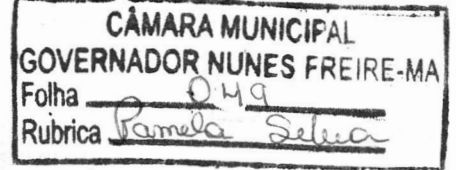 CÂMARA MUNICIPAL
GOVERNADOR NUNES FREIRE-MA
Folha 049
Rubrica Pamela Selua